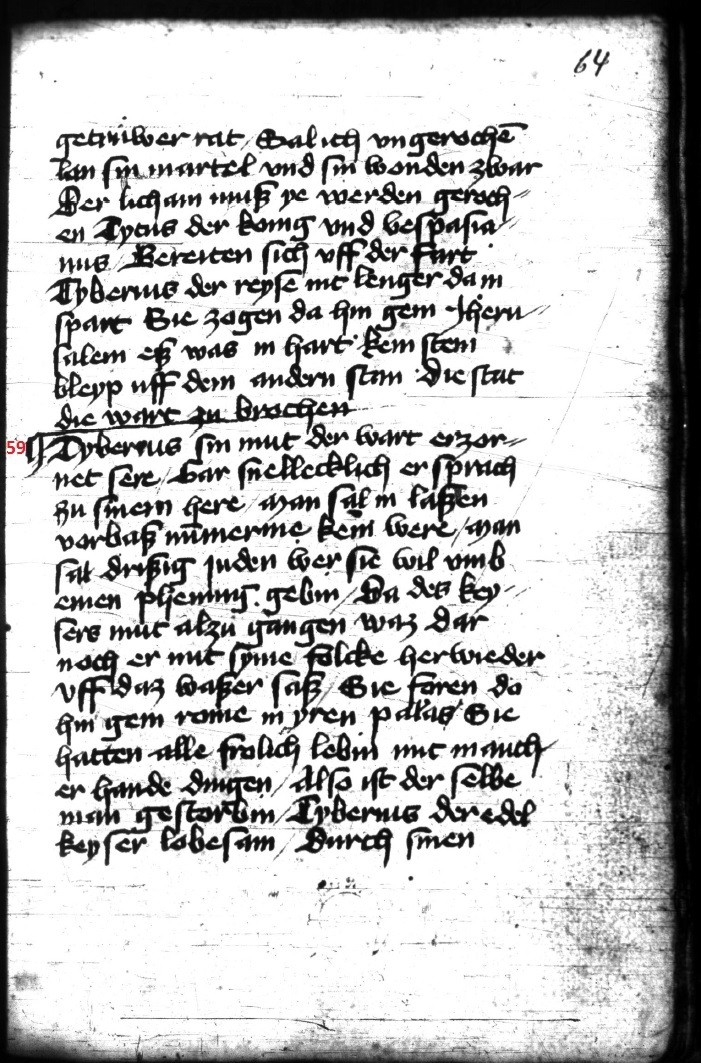 64
getruwer rat / Sal ich vngerochē
lan sin martel vnd sin wonden zwar
Der licham muß ye werden geroch⸗
en Tytus der konig vnd vespasia⸗
nus / Bereiten sich vff der fart
Tyberius der reyse nit lenger da in
spart Sie zogen da hin gein Jheru⸗
salem eß was in hart kein stein
bleyp uff dem andern stan Die stat
die wart zu brochen
59 Tyberius sin mut der wart erzor⸗
net sere / Gar snellecklich er sprach
zu sinem here / Man sal in laßen
vorbaß nūmerme kein were / Man
sal drißig Juden wer sie wil vmb
einen phening gebin / Da des key⸗
sers mut alzu gangen waz dar
noch er mit syme folcke herwieder
vff daz waßer saß / Sie foren do
hin gein rome in yren palas / Sie
hatten alle frolich lebin mit manch
er hande dingen / Also ist der selbe
man gestorbin / Tyberius der edel
keyser lobesam / Durch sinen